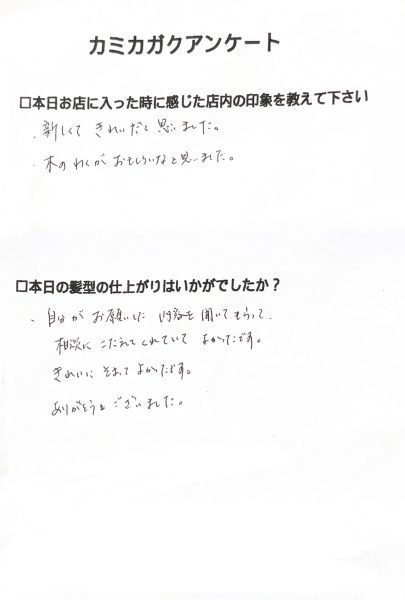 カミカガクアンケート
□本日お店に入った時に感じた店内の印象を教えて下さい
・新しくて きれいだと 思いました。
・木の わくが おもしろいなと 思いました。
□本日の髪型の仕上がりはいかがでしたか？
・自分が お願いした 内容を 聞いてもらって、
相談に こたえてくれていて よかったです。
きれいに そまって よかったです。
ありがとう ございました。